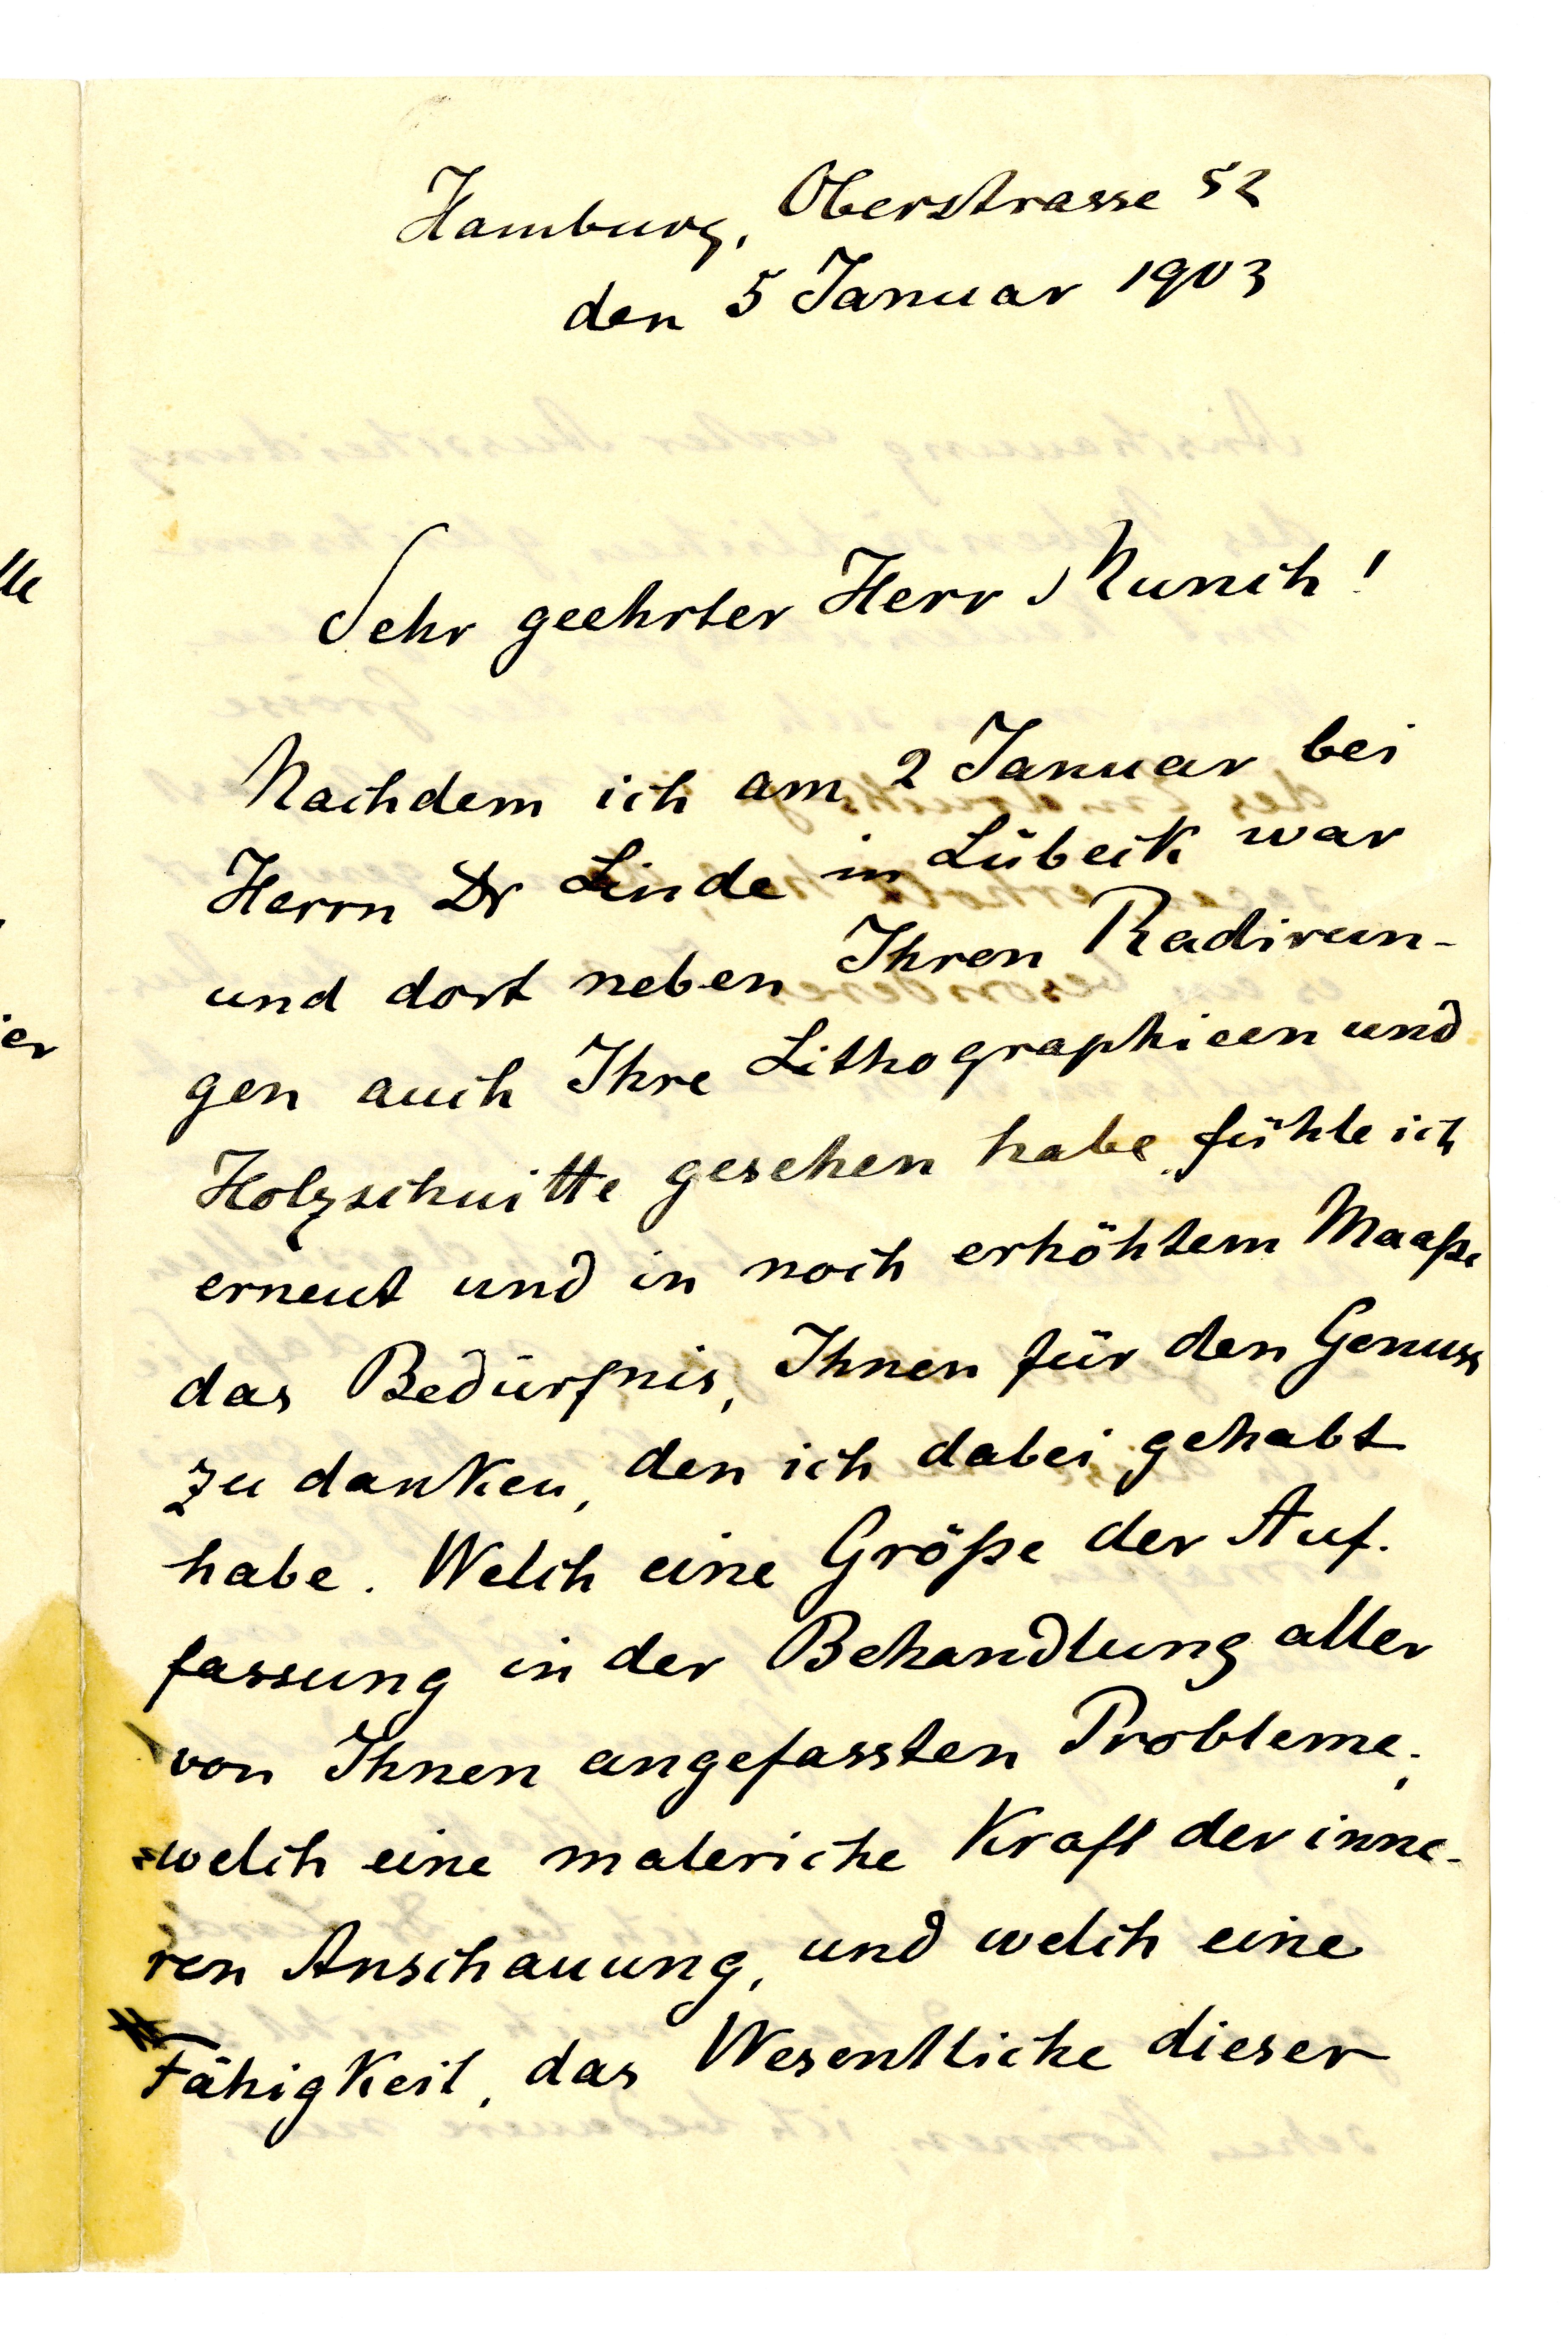 Hamburg, Oberstrasse 52
den 5 Januar 1903
Sehr geehrter Herr Munch!
Nachdem ich am 2 Januar bei
Herrn Dr Linde in Lübeck war
und dort neben Ihren Radirun-
gen auch Ihre Lithographieen und
Holzschnitte gesehen habe, fühle ich
erneut und in noch erhöhtem Maaße
das Bedürfnis, Ihnen für den Genuss
zu danken, den ich dabei gehabt
habe. Welch eine Größe der Auf-
fassung in der Behandlung aller
von Ihnen angefassten Probleme;
welch eine malerische Kraft der inne-
ren Anschauung, und welch eine
Fähigkeit, das Wesentliche dieser